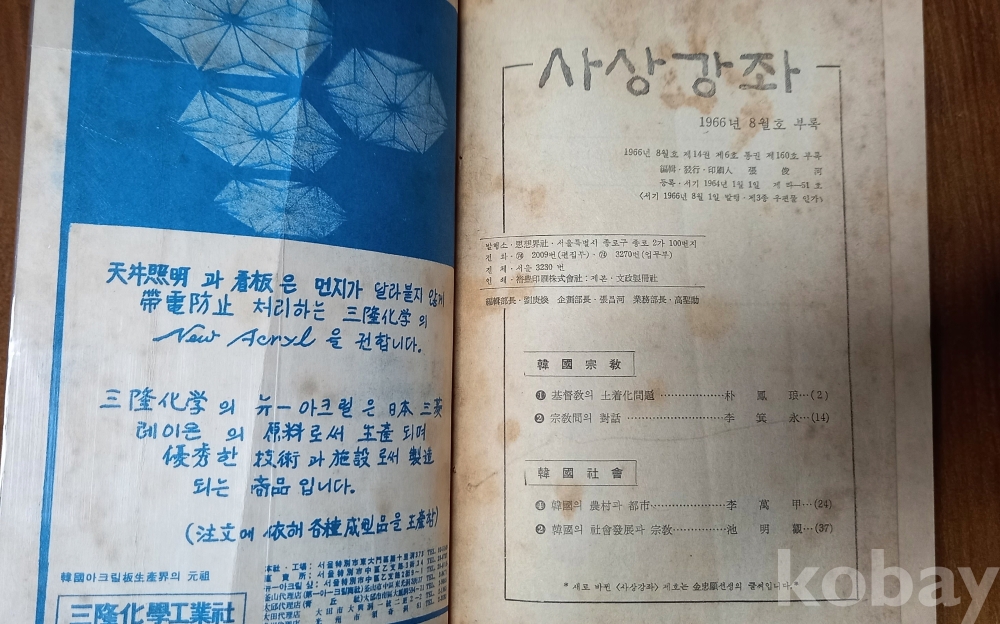 天井照明 과 看板 은 먼지가 달라붙지 않게
帶電防止 처리하는 三隆化学 의
New Acryl 을 권합니다.
三隆化学 의 뉴ー아크릴 은 日本 三菱
레이온 의 原料로써 生產 되며
優秀한 技術 과 施設 로써 製造
되는 商品 입니다.
(注文에 依해 各種 成型品을 生產함)
韓國아크릴板生產界의 元祖
三隆化學工業社
사상강좌
1966년 8월호 부록
1966년 8월호 제14권 제6호 통권 제160호 부록
編輯·發行·印刷人 張 俊 河
등록·서기 1964년 1월 1일 제 라—51 호
<서기 1966년 8월 1일 발행·제3종 우편물 인가>
발행소·思想界社·서울특별시 종로구 종로 2가 100번지
전 화· 2009번(편집부)· 3270번(업무부)
진 체·서울 3230 번
인 쇄·裕豊印刷株式會社:제본·文政製冊社
編輯部長·劉庚煥 企劃部長·張昌河 業務部長·高聖勳
韓國宗敎
❶ 基督敎의 土着化問題 ⋯⋯⋯⋯ 朴 鳳 琅⋯(2)
❷ 宗敎間의 對話 ⋯⋯⋯⋯ 李 箕 永⋯(14)
韓國社會
❶ 韓國의 農村과 都市 ⋯⋯⋯⋯ 李 萬 甲⋯(24)
❷ 韓國의 社會發展과 宗敎 ⋯⋯⋯⋯ 池 明 觀⋯(37)
* 새로 바뀐 <사상강좌> 제호는 金忠顯선생의 글씨입니다.*
kobay